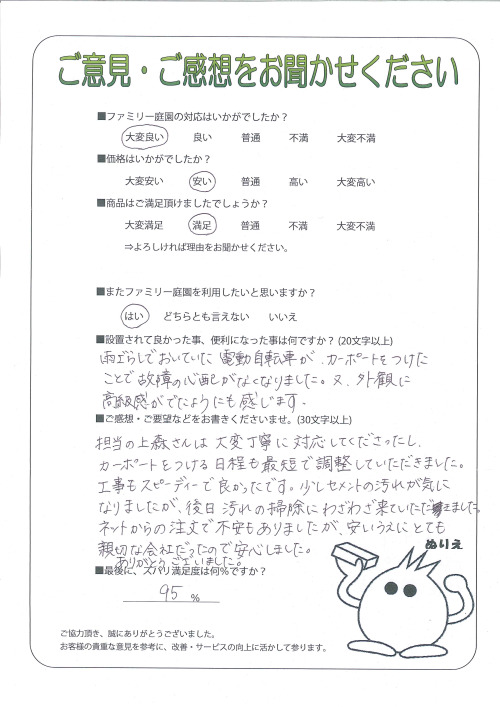 ご意見・ご感想をお聞かせください
■ファミリー庭園の対応はいかがでしたか？
大変良い　良い　普通　不満　大変不満
■価格はいかがでしたか？
大変安い　安い　普通　高い　大変高い
■商品はご満足頂けましたでしょうか？
大変満足　満足　普通　不満　大変不満
⇒よろしければ理由をお聞かせください。
■またファミリー庭園を利用したいと思いますか？
はい　どちらとも言えない　いいえ
■設置されて良かった事、便利になった事は何ですか？(20文字以上)
雨ざらしでおいていた電動自転車が、カーポートをつけた
ことで故障の心配がなくなりました。又、外観に
高級感がでたようにも感じます。
■ご感想・ご要望などをお書きくださいませ。(30文字以上)
担当の上森さんは大変丁寧に対応してくださったし、
カーポートをつける日程も最短で調整していただきました。
工事もスピーディーで良かったです。少しセメントの汚れが気に
なりましたが、後日汚れの掃除にわざわざ来ていただきました。
ネットからの注文で不安もありましたが、安いうえにとても
親切な会社だったので安心しました。
ありがとうございました。
■最後に、ズバリ満足度は何％ですか？
95 %
ぬりえ
ご協力頂き、誠にありがとうございました。
お客様の貴重な意見を参考に、改善・サービスの向上に活かして参ります。